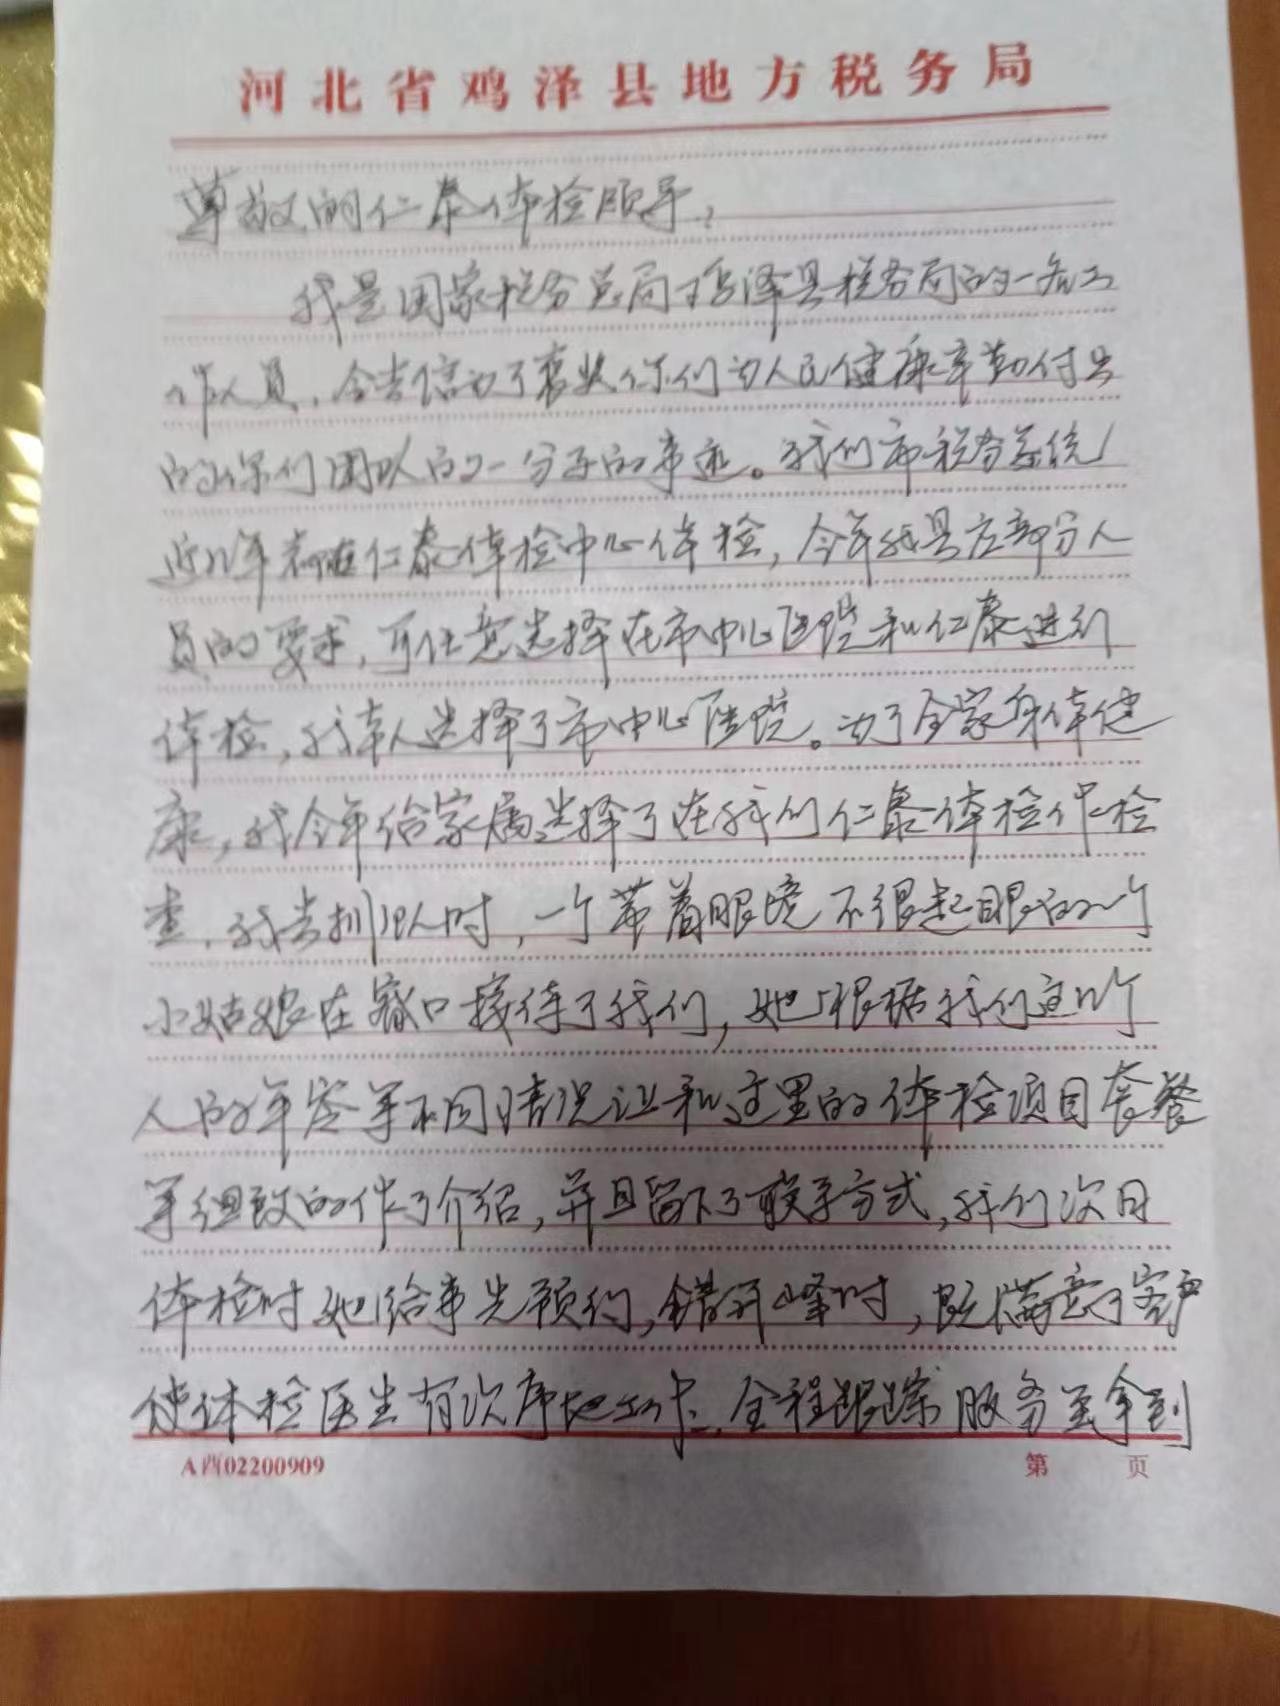 河北省鸡泽县地方税务局
尊敬的仁泰体检领导：
我是国家税务总局鸡泽县税务局的一名工
作人员，今去信为了褒奖你们为人民健康辛勤付出
的你们团队的一分子的事迹。我们市税务系统
近几年都在仁泰体检中心体检，今年我县应部分人
员的要求，可任意选择在市中心医院和仁泰进行
体检，我本人选择了市中心医院。为了全家身体健
康，我今年给家属选择了在我们仁泰体检作检
查，我去排队时，一个带着眼镜不很起眼的一个
小姑娘在窗口接待了我们，她根据我们这几个
人的年龄等不同情况让和这里的体检项目套餐
等细致的作了介绍，并且留下了联系方式，我们次日
体检时她给事先预约，错开峰时，既满意了客户
使体检医生有次序地工作，全程跟踪服务至拿到
A西02200909
第 页